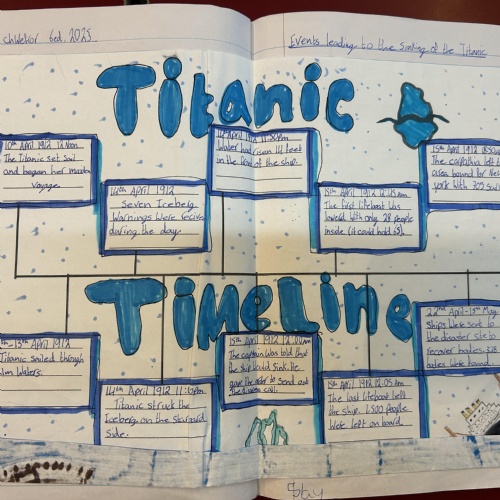 6ed. 2025.
Events leading to the sinking of the Titanic
Titanic
10th April 1912 12 Noon
The Titanic set sail
and began her maiden
voyage.
14th April 1912
Seven Iceberg
Warnings were recive
during the day.
April 1912 11:50pm
Water had risen 14 feet
in the front of the ship.
15th April 1912 12:45am
The first lifeboat was
lowerd with only 28 people
inside (it could hold 65).
15th April 1912 8:50
The carpathia left
area bound for New
york with 705
TimeLine
13th April 1912
Titanic smiled through
Waters.
14th April 1912 11:
Titanic struck the
Iceberg on the
side.
15th April 1912 12:00am
The captain was told that
the ship would sink. He
gave the order to send out
the call.
15th April 1912 2:05am
The last lifeboat left
the ship. 1,500 people
were left on board
22nd April - 15th May
Ships were sent to
the disaster site to
recover bodies.
bodies were found.